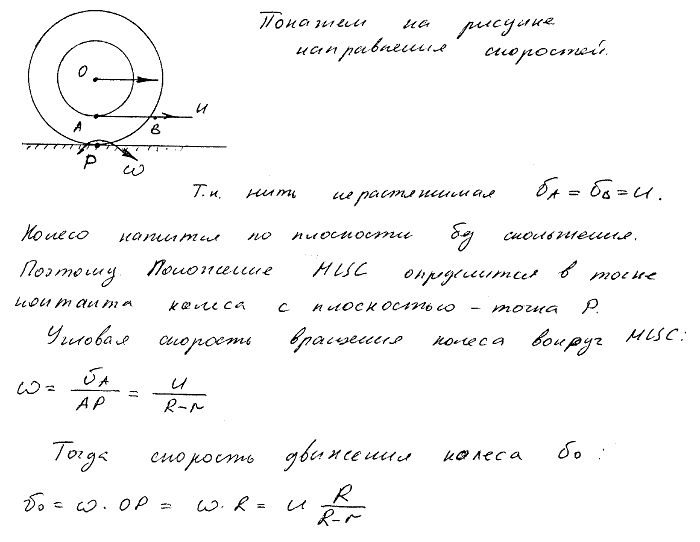 Покажем на рисунке
направления скоростей.
O
A
B
u
P
ω
Т.к. нить нерастяжимая υA = υB = u.
Колесо катится по плоскости без скольжения.
Поэтому. Положение МЦС определится в точке
контакта колеса с плоскостью – точка P.
Угловая скорость вращения колеса вокруг МЦС:
ω = υA / AP = u / (R-r)
Тогда скорость движения колеса υ₀ :
υ₀ = ω · OP = ω · R = u R / (R-r)